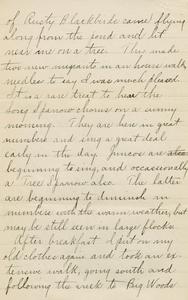 of Rusty Blackbirds came flying
along from the pond and lit
near me on a tree. This made
two new migrants in an hours walk,
needless to say I was much pleased.
It is a rare treat to hear the
Song Sparrow chorus on a sunny
morning. They are here in great
number and sing a great deal
early in the day. Juncos are also
beginning to sing, and occasionally
a Tree Sparrow also. The latter
are beginning to diminish in
numbers with the warm weather, but
may be still seen in large flocks.
After breakfast I put on my
old clothes again and took an ex-
tensive walk, going south and
following the creek to Big Woods